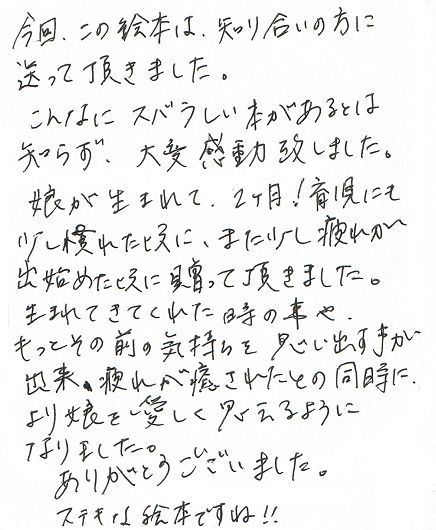 今回、この絵本は、知り合いの方に
送って頂きました。
こんなに スバラしい本があるとは
知らず、大変感動致しました。
娘が生まれて、2ヶ月!育児にも
少し慣れた頃に、また少し疲れが
出始めた頃に贈って頂きました。
生まれてきてくれた時の事や、
もっとその前の気持ちを思い出す事が
出来、疲れが癒されたとの同時に、
より娘を愛しく思えるように
なりました。
ありがとうございました。
ステキな絵本ですね!!